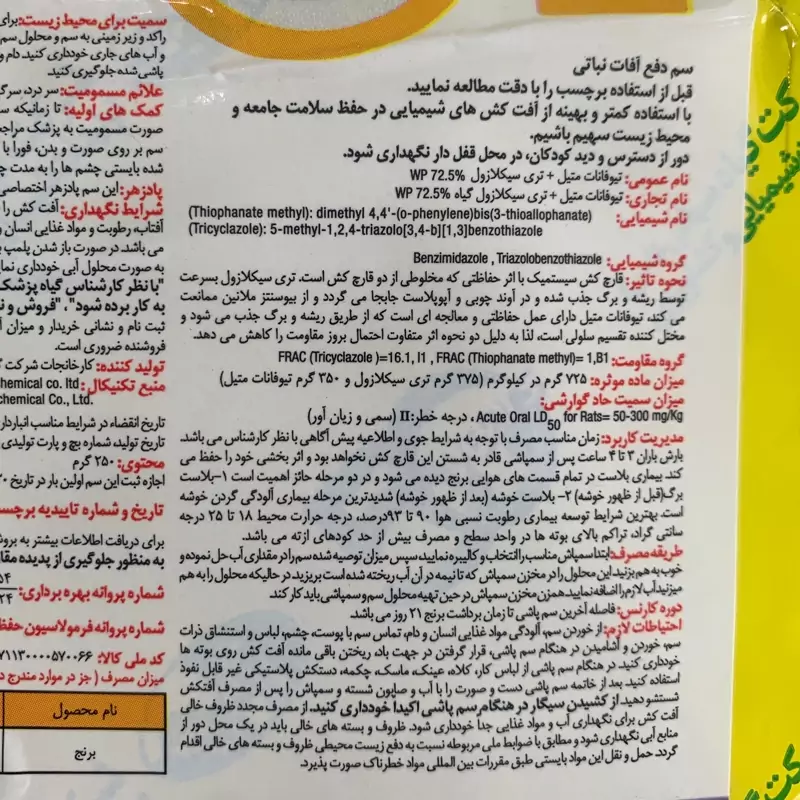 سم دفع آفات نباتی
قبل از استفاده برچسب را با دقت مطالعه نمایید.
با استفاده کمتر و بهینه از آفت کش های شیمیایی در حفظ سلامت جامعه و
محیط زیست سهیم باشیم.
دور از دسترس و دید کودکان، در محل قفل دار نگهداری شود.
نام عمومی: تیوفانات متیل + تری سیکلازول WP 72.5%
نام تجاری: تیوفانات متیل + تری سیکلازول گیاه WP 72.5%
نام شیمیایی: (Thiophanate methyl): dimethyl 4,4'-(o-phenylene)bis(3-thioallophanate)
(Tricyclazole): 5-methyl-1,2,4-triazolo[3,4-b][1,3]benzothiazole
گروه شیمیایی: Benzimidazole , Triazolobenzothiazole
نحوه تاثیر: قارچ کش سیستمیک با اثر حفاظتی که مخلوطی از دو قارچ کش است. تری سیکلازول بسرعت
توسط ریشه و برگ جذب شده و در آوند چوبی و آپوپلاست جابجا می گردد و از بیوسنتز ملانین ممانعت
می کند، تیوفانات متیل دارای عمل حفاظتی و معالجه ای است که از طریق ریشه و برگ جذب می شود و
مختل کننده تقسیم سلولی است، لذا به دلیل دو نحوه اثر متفاوت احتمال بروز مقاومت را کاهش می دهد.
گروه مقاومت: FRAC (Tricyclazole )=16.1, I1 , FRAC (Thiophanate methyl)= 1,B1
میزان ماده موثره: ۷۲۵ گرم در کیلوگرم (۳۷۵ گرم تری سیکلازول و ۳۵۰ گرم تیوفانات متیل)
میزان سمیت حاد گوارشی:
Acute Oral LD50 for Rats= 50-300 mg/Kg ، درجه خطر: II (سمی و زیان آور)
مدیریت کاربرد: زمان مناسب مصرف با توجه به شرایط جوی و اطلاعیه پیش آگاهی با نظر کارشناس می باشد.
بارش باران ۳ تا ۴ ساعت پس از سمپاشی قادر به شستن این قارچ کش نخواهد بود و اثر بخشی خود را حفظ می
کند. بیماری بلاست در تمام قسمت های هوایی برنج دیده می شود و در دو مرحله حائز اهمیت است ۱-بلاست
برگ(قبل از ظهور خوشه) ۲- بلاست خوشه (بعد از ظهور خوشه) شدیدترین مرحله بیماری آلودگی گردن خوشه
است. بهترین شرایط توسعه بیماری رطوبت نسبی هوا ۹۰ تا ۹۳درصد، درجه حرارت محیط ۱۸ تا ۲۵ درجه
سانتی گراد، تراکم بالای بوته ها در واحد سطح و مصرف بیش از حد کودهای ازته می باشد.
طریقه مصرف: ابتدا سمپاش مناسب را انتخاب و کالیبره نمایید، سپس میزان توصیه شده سم را در مقداری آب حل نموده و
خوب به هم بزنید. این محلول را در مخزن سمپاش که تا نیمه در آن آب ریخته شده است بریزید در حالیکه محلول را به هم
میزنید آب لازم را اضافه نمایید. همزن مخزن سمپاش در حین تهیه محلول سم و سمپاشی باید کار کند.
دوره کارنس: فاصله آخرین سم پاشی تا زمان برداشت برنج ۲۱ روز می باشد.
احتیاطات لازم: از خوردن سم، آلودگی مواد غذایی انسان و دام، تماس سم با پوست، چشم، لباس و استنشاق ذرات
سم، خوردن و آشامیدن در هنگام سم پاشی، قرار گرفتن در جهت باد، ریختن باقی مانده آفت کش روی بوته ها
خودداری کنید. در هنگام سم پاشی از لباس کار، کلاه، عینک، ماسک، چکمه، دستکش پلاستیکی غیر قابل نفوذ
استفاده کنید. بعد از خاتمه سم پاشی دست و صورت را با آب و صابون شسته و سمپاش را پس از مصرف آفتکش
شستشو دهید. از کشیدن سیگار در هنگام سم پاشی اکیدا خودداری کنید. از مصرف مجدد ظروف خالی
آفت کش برای نگهداری آب و مواد غذایی جدا خودداری شود. ظروف و بسته های خالی باید در یک محل دور از
منابع آبی نگهداری شود و مطابق با ضوابط ملی مربوطه نسبت به دفع زیست محیطی ظروف و بسته های خالی اقدام
گردد. حمل و نقل این مواد بایستی طبق مقررات بین المللی مواد خطرناک صورت پذیرد.
سمیت برای محیط زیست: برای
راکد و زیر زمینی به سم و محلول سم
و آب های جاری خودداری کنید. دام و
پاشی شده جلوگیری کنید.
علائم مسمومیت: سر درد، سرگ
کمک های اولیه: تا زمانیکه س
صورت مسمومیت به پزشک مراجع
سم بر روی صورت و بدن، فورا با
شده بایستی چشم ها را به مدت چ
پادزهر: این سم پادزهر اختصاصی
شرایط نگهداری: آفت کش را
آفتاب، رطوبت و مواد غذایی انسان و
می باشد. در صورت باز شدن پلمپ ب
به صورت محلول آبی خودداری نمای
"با نظر کارشناس گیاه پزشک
به کار برده شود"، "فروش و ن
ثبت نام و نشانی خریدار و میزان آ
فروشنده ضروری است.
تولید کننده: کارخانجات شرکت گ
منبع تکنیکال: hemical co. ltd
hemical Co., Ltd.
تاریخ انقضاء در شرایط مناسب انباردار
تاریخ تولید، شماره بچ و پارت تولیدی
محتوی: ۲۵۰ گرم
اجازه ثبت این سم اولین بار در تاریخ ۲۰
تاریخ و شماره تاییدیه برچسب
برای دریافت اطلاعات بیشتر به بروش
به منظور جلوگیری از پدیده مقا
شماره پروانه بهره برداری:
شماره پروانه فرمولاسیون حفظ
کد ملی کالا: ۷۱۱۳۰۰۰۰۵۷۰۰۶۶
میزان مصرف ( جز در موارد مندرج د
نام محصول
برنج